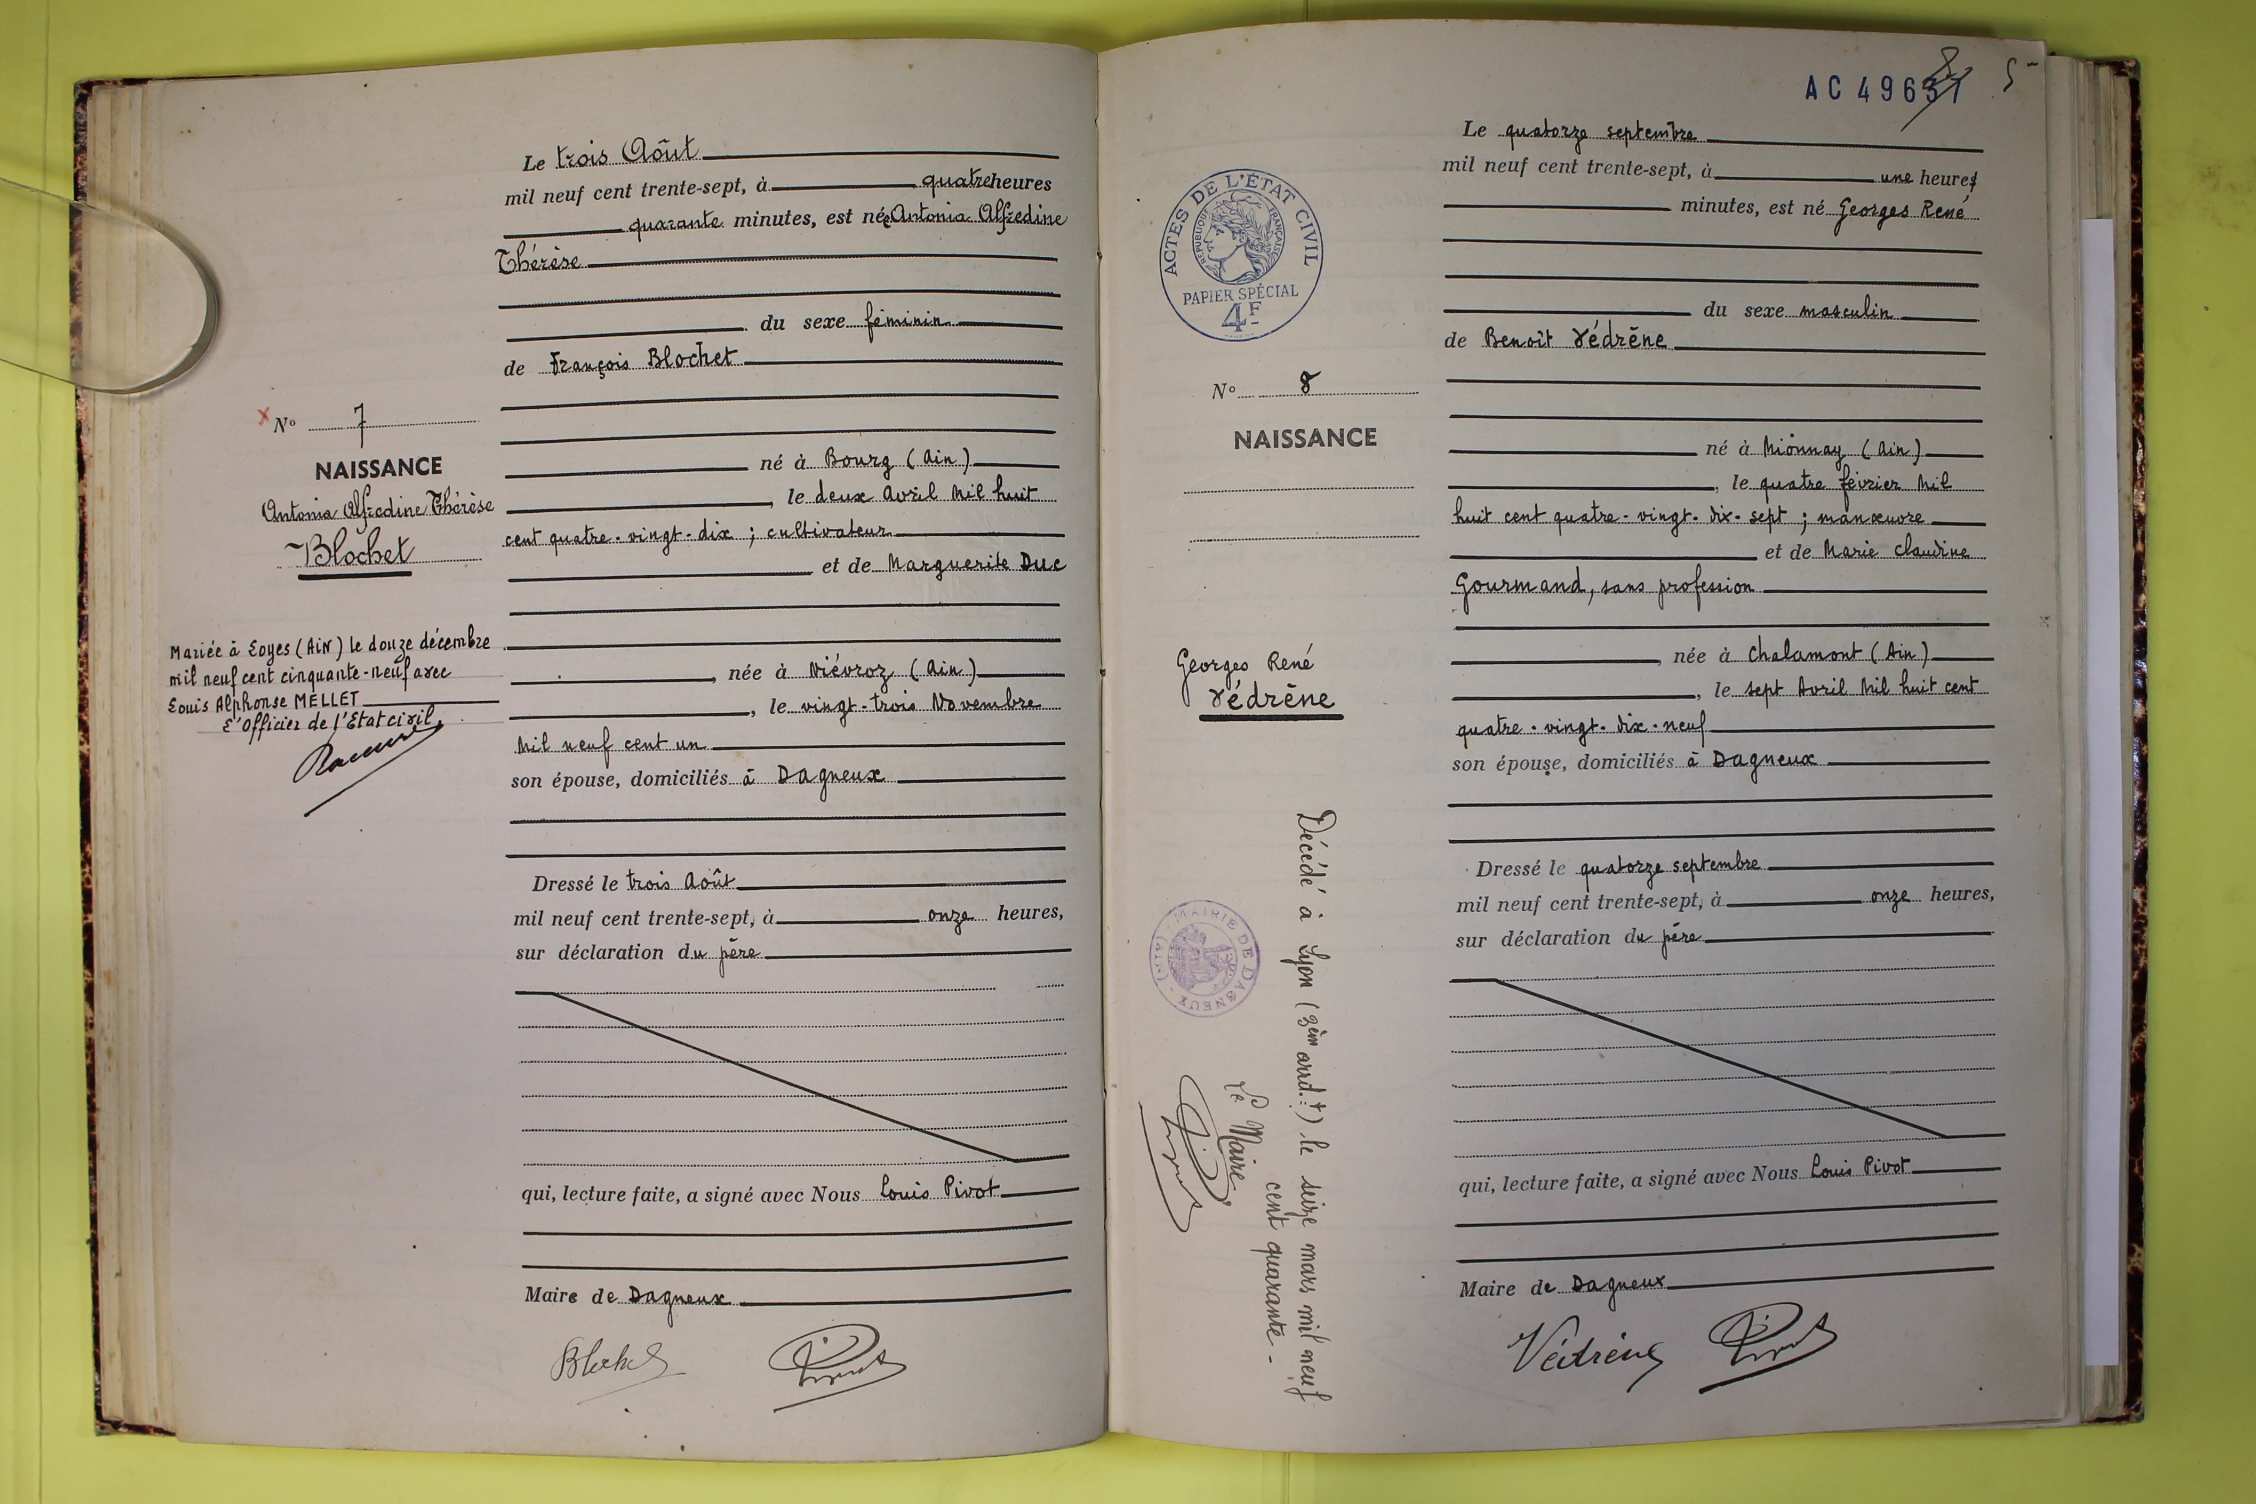 Le trois Août
mil neuf cent trente-sept, à quatre heures
quarante minutes, est née Antonia Alfredine
Thérèse
du sexe féminin
de François Blochet
né à Bourg (Ain)
, le deux Avril Mil huit
cent quatre-vingt-dix ; cultivateur
et de Marguerite Duc
, née à Niévroz (Ain)
, le vingt-trois Novembre
Mil neuf cent un
son épouse, domiciliés à Dagneux
Dressé le trois Août
mil neuf cent trente-sept, à onze heures,
sur déclaration du père
qui, lecture faite, a signé avec Nous Louis Pivot
Maire de Dagneux
Blochet Pivot
x No 7
NAISSANCE
Antonia Alfredine Thérèse
Blochet
Mariée à Loyes (AiN) le douze décembre
mil neuf cent cinquante-neuf avec
Louis Alphonse MELLET
L'Officier de l'Etat civil,
AC 49637
8
5
Le quatorze septembre
mil neuf cent trente-sept, à une heures
minutes, est né Georges René
du sexe masculin
de Benoît Védrène
né à Mionnay (Ain)
, le quatre février Mil
huit cent quatre-vingt-dix-sept ; manœuvre
et de Marie Claudine
Gourmand, sans profession
, née à Chalamont (Ain)
, le sept Avril Mil huit cent
quatre-vingt-dix-neuf
son épouse, domiciliés à Dagneux
Dressé le quatorze septembre
mil neuf cent trente-sept, à onze heures,
sur déclaration du père
qui, lecture faite, a signé avec Nous Louis Pivot
Maire de Dagneux
Védrène Pivot
ACTES DE L'ÉTAT CIVIL
RÉPUBLIQUE FRANÇAISE
PAPIER SPÉCIAL
4F
No 8
NAISSANCE
Georges René
Védrène
Décédé à Lyon (3ème arrd.t) le seize mars mil neuf
cent quarante -
Le Maire
Pivot
MAIRIE DE DAGNEUX (AIN)